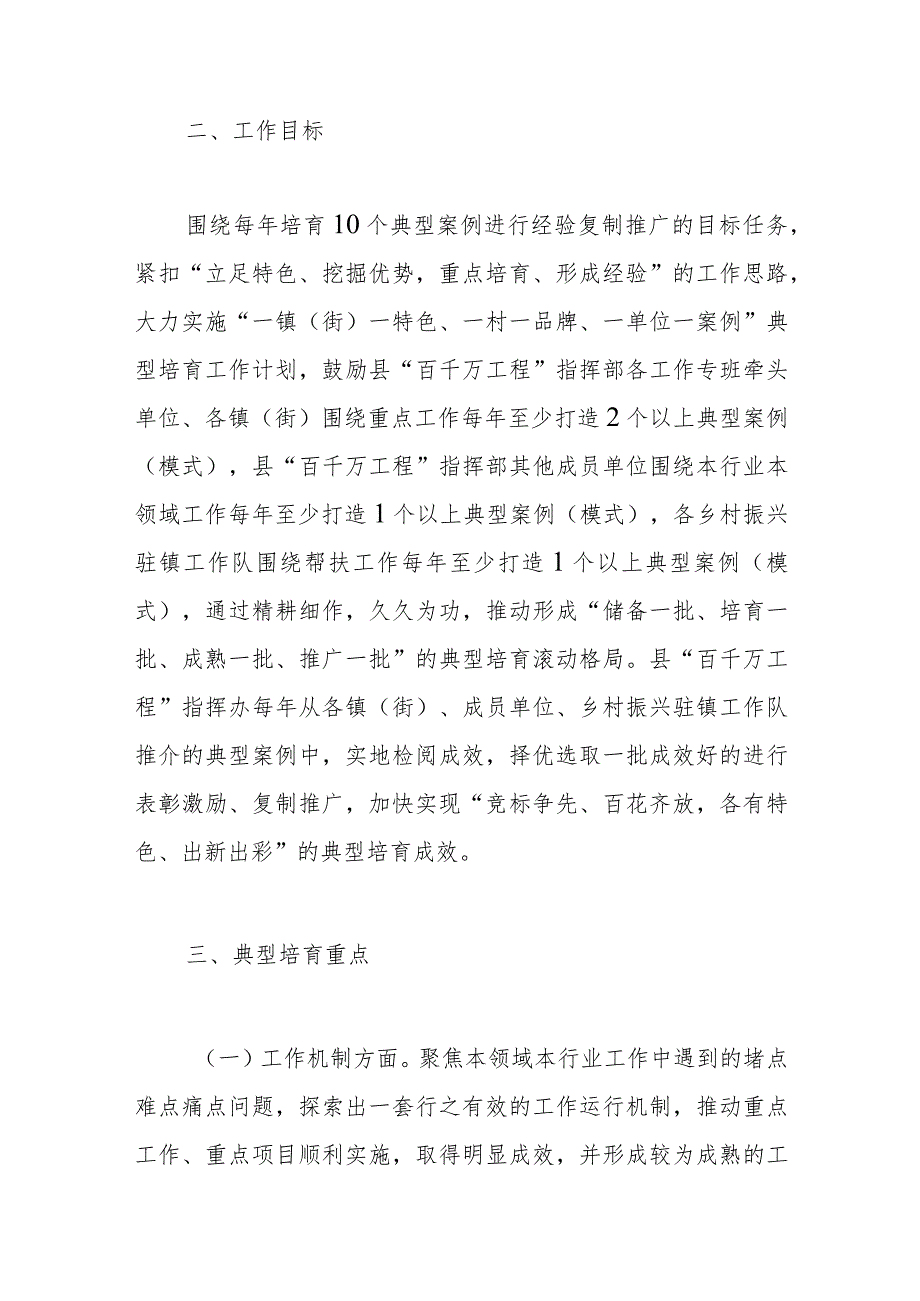 二、工作目标
围绕每年培育10个典型案例进行经验复制推广的目标任务，
紧扣“立足特色、挖掘优势，重点培育、形成经验”的工作思路，
大力实施“一镇（街）一特色、一村一品牌、一单位一案例”典
型培育工作计划，鼓励县“百千万工程”指挥部各工作专班牵头
单位、各镇（街）围绕重点工作每年至少打造2个以上典型案例
（模式），县“百千万工程”指挥部其他成员单位围绕本行业本
领域工作每年至少打造1个以上典型案例（模式），各乡村振兴
驻镇工作队围绕帮扶工作每年至少打造1个以上典型案例（模
式），通过精耕细作，久久为功，推动形成“储备一批、培育一
批、成熟一批、推广一批”的典型培育滚动格局。县“百千万工
程”指挥办每年从各镇（街）、成员单位、乡村振兴驻镇工作队
推介的典型案例中，实地检阅成效，择优选取一批成效好的进行
表彰激励、复制推广，加快实现“竞标争先、百花齐放，各有特
色、出新出彩”的典型培育成效。
三、典型培育重点
（一）工作机制方面。聚焦本领域本行业工作中遇到的堵点
难点痛点问题，探索出一套行之有效的工作运行机制，推动重点
工作、重点项目顺利实施，取得明显成效，并形成较为成熟的工